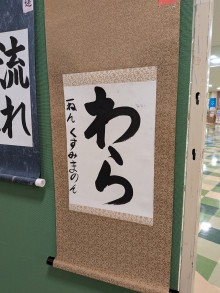 わら
一ねん くすみまのん
流れ